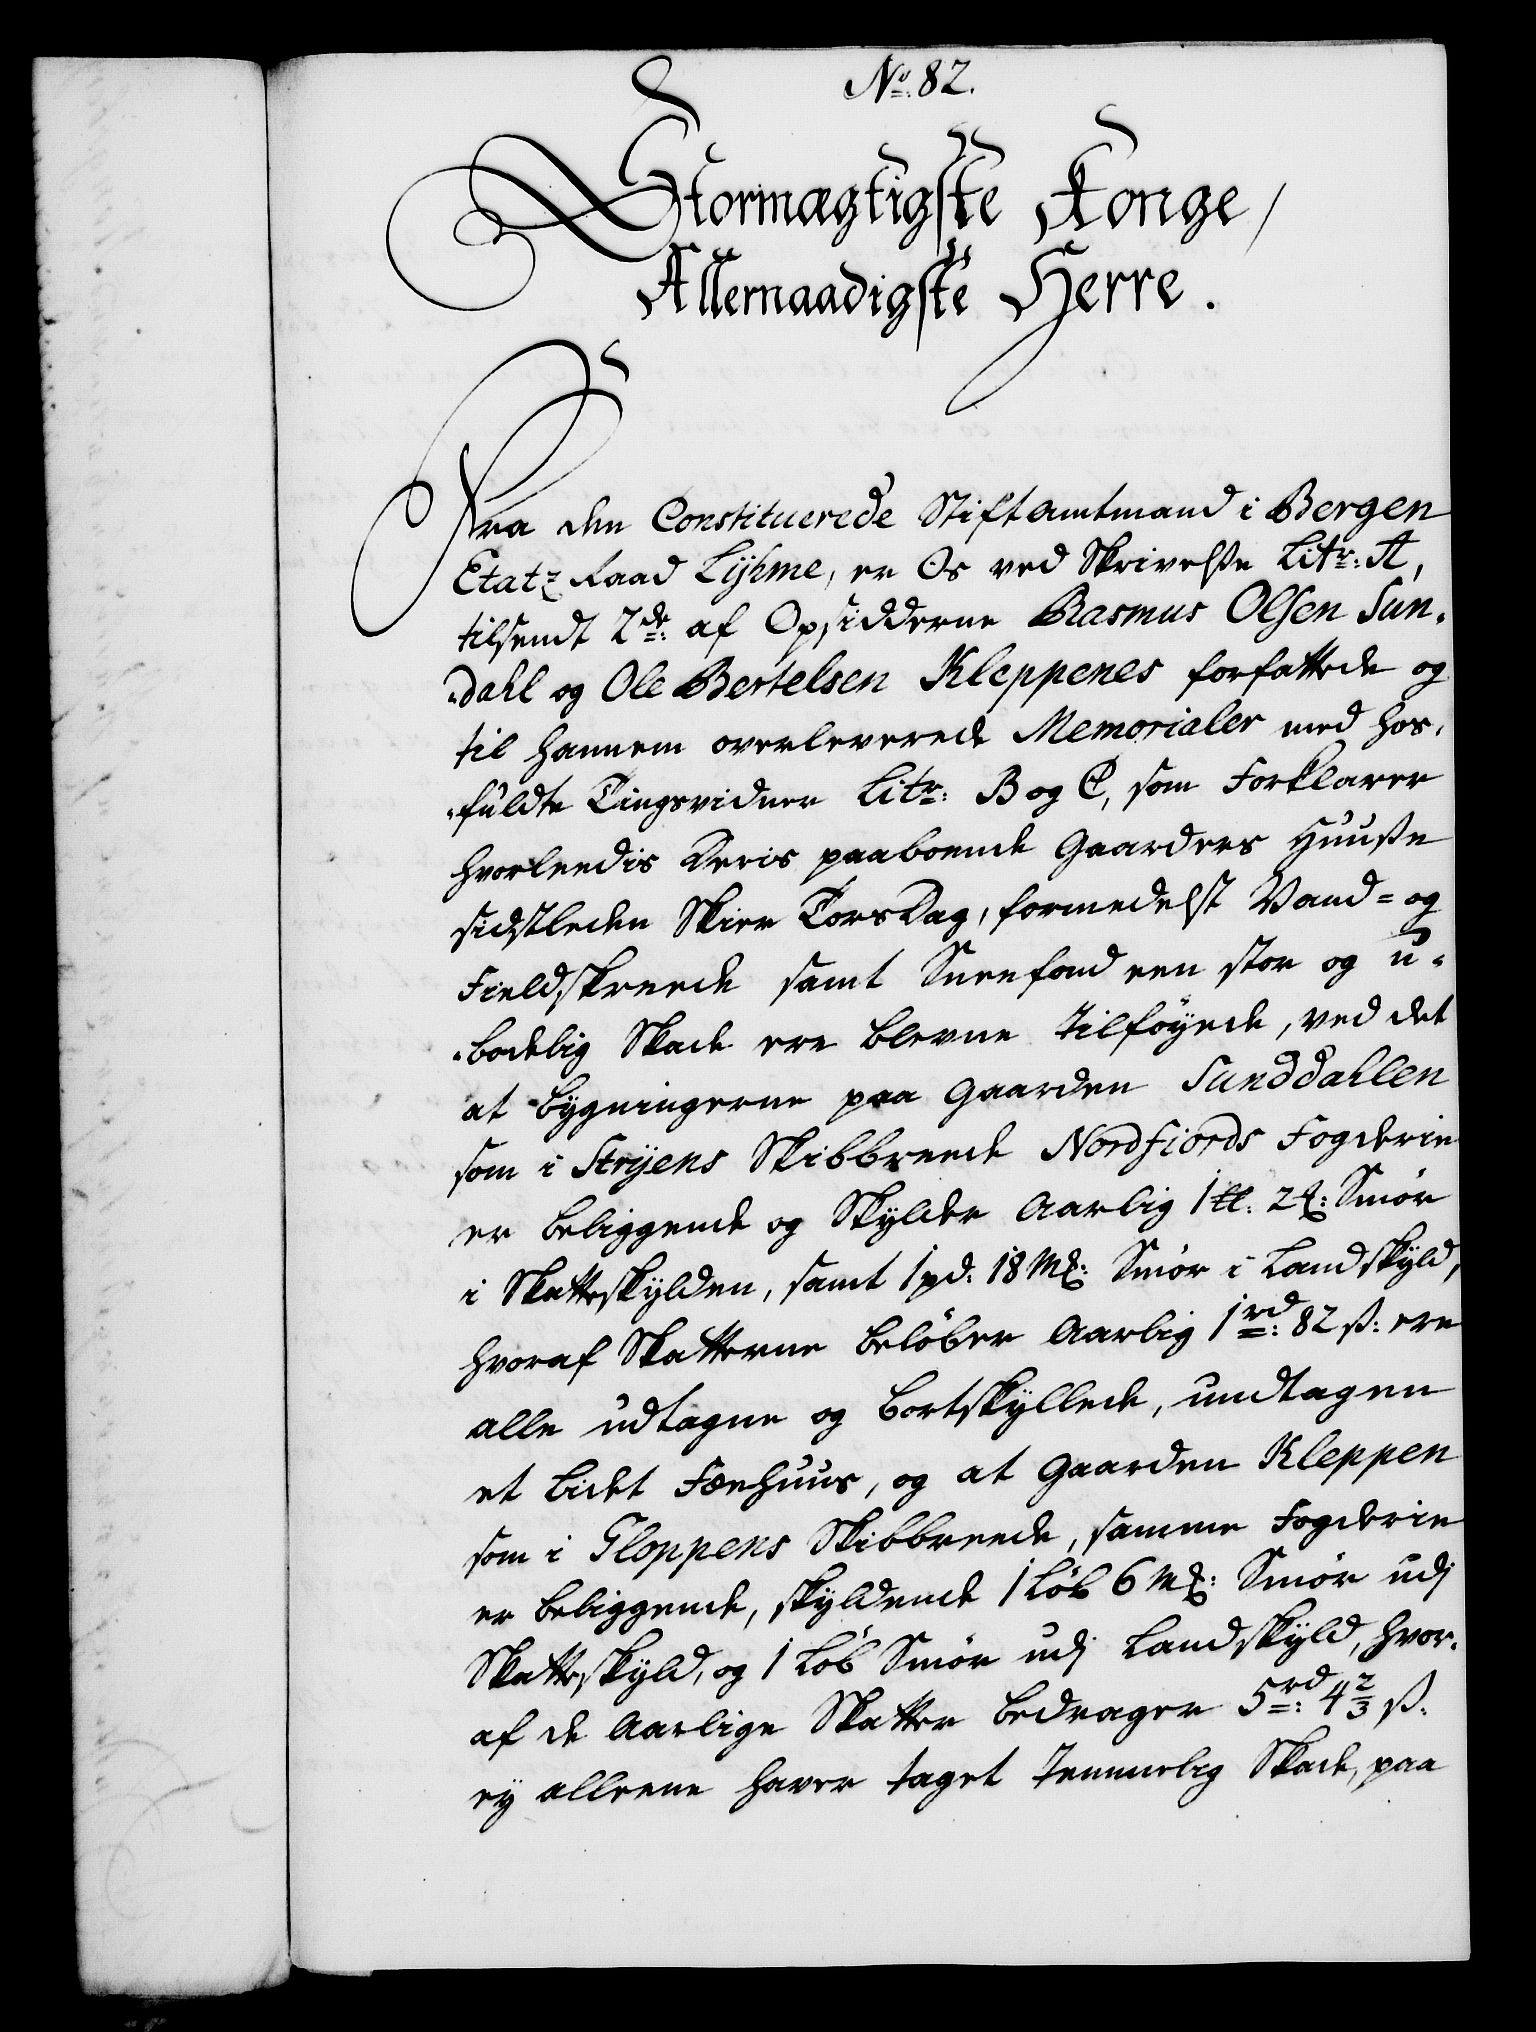 No. 82.
Stormægtigste Konge,
Allernaadigste Herre.
Fra den Constituerede Stiftamtmand i Bergen
Etatz Raad Lyhme, er Os ved Skrivelse Litr: A,
tilsendt 2de: af Opsidderne Rasmus Olsen Sun-
-dahl og Ole Bertelsen Kleppenes forfattede og
til hannem overleverede Memorialer med hos-
-fuldte Tingsvidner Litr: B og C, som Forklarer
hvorleedis Deris paaboende Gaarders Huuse
sidstleden Skier TorsDag, formedelst Vand- og
Fieldskreede samt Sneefond een stor og u-
-bodelig Skade ere blevne tilføyede, ved det
at bygningerne paa Gaarden Sunddahlen
som i Stryens Skibbreede Nordfiords Fogderie
er beliggende og Skylder Aarlig 1 ll. 2 : Smør
i Skatteskylden, samt 1 pd. 18 Mk: Smør i Landskyld,
hvoraf Skatterne beløber Aarlig 1 rd: 82 ß: ere
alle udtagne og bortskyllede, undtagen
et Lidet Fæehuus, og at Gaarden Kleppen
som i Gloppens Skibbreede, samme Fogderie
er beliggende, skyldende 1 Løb 6 Mk: Smør udj
Skatteskyld, og 1 Løb Smør udj Landskyld, hvor-
af de Aarlige Skatter bedrager 5 rd: 4 2/3 ß.
ey alleene haver taget Temmelig Skade, paa